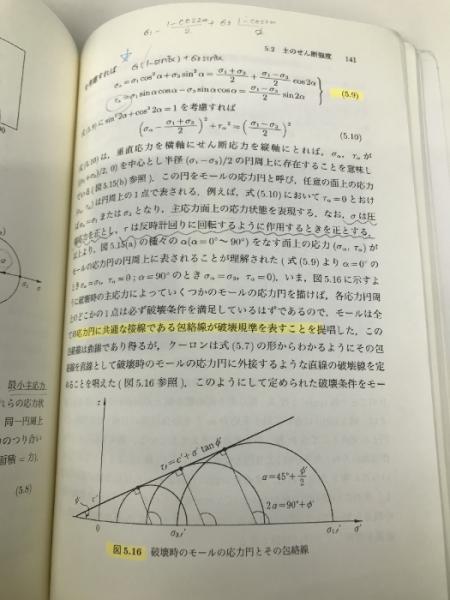 5.2 土のせん断強度 141
を考慮すれば
σα = σ1 cos²α + σ3 sin²α = (σ1+σ3)/2 + (σ1−σ3)/2 cos2α
τα = σ1 sinα cosα − σ3 sinα cosα = (σ1−σ3)/2 sin2α
(5.9)
式(5.9)に sin²2α+cos²2α=1 を考慮すれば
(σα − (σ1+σ3)/2)² + τα² = ((σ1−σ3)/2)²
(5.10)
式(5.10)は，垂直応力を横軸にせん断応力を縦軸にとれば，σα，τα が
((σ1+σ3)/2, 0) を中心とし半径 (σ1−σ3)/2 の円周上に存在することを意味し
ている (図5.15(b)参照)．この円をモールの応力円と呼び，任意の面上の応力
は円周上の1点で表される．例えば，式(5.10)において τα=0 とおけ
または σ3 となり，主応力面上の応力状態を表現する．なお，σ は圧
を正とし，τ は反時計回りに回転するように作用するときを正とする．
以上より，図5.15(a)の種々の α(α=0°～90°) をなす面上の応力 (σα, τα) が
モールの応力円の円周上に表されることが理解された (式(5.9)より α=0° の
とき σα=σ1, τα=0 ; α=90° のとき σα=σ3, τα=0)．いま，図5.16に示すよ
うに破壊時の主応力によっていくつかのモールの応力円を描けば，各応力円周
上のどこかの1点は必ず破壊条件を満足しているはずであるので，モールは全
ての応力円に共通な接線である包絡線が破壊規準を表すことを提唱した．この
包絡線は曲線であり得るが，クーロンは式(5.7)の形からわかるようにその包
絡線を直線として破壊時のモールの応力円に外接するような直線の破壊線を定
めることを唱えた (図5.16参照)．このようにして定められた破壊条件をモー
τ
τf=c′+σ′tanφ′
α=45°+φ′/2
2α=90°+φ′
φ′
c′
0
σ′
図5.16 破壊時のモールの応力円とその包絡線
最小主応力
れらの応力状
同一円周上
つり合い
面積＝力).
(5.8)